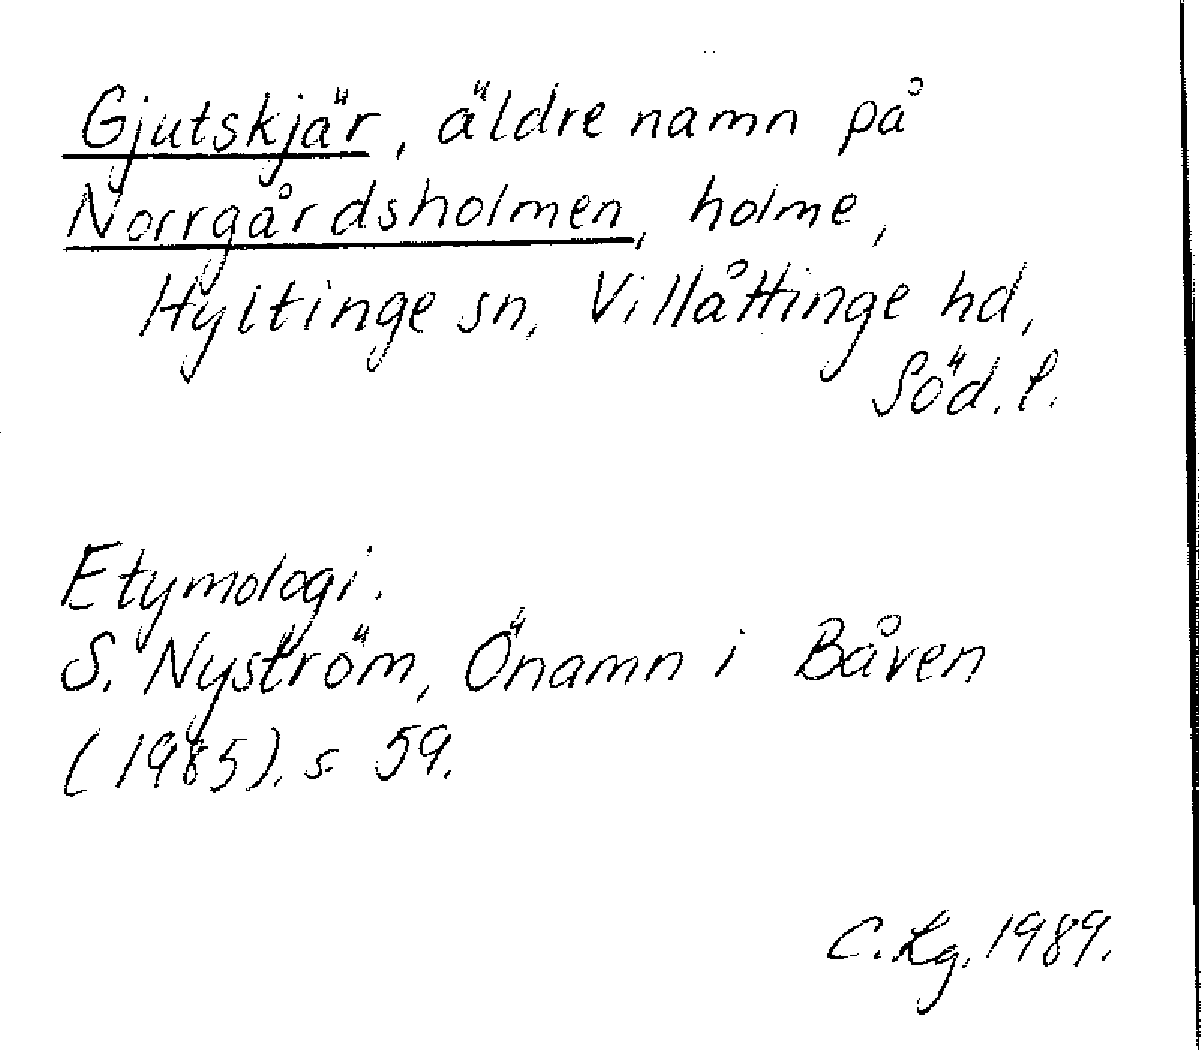 Gjutskjär, äldre namn på
Norrgårdsholmen, holme,
Hyltinge sn, Villåttinge hd,
Söd. l.
Etymologi.
S. Nyström, Önamn i Båven
(1985). s 59.
C. Lg. 1989.